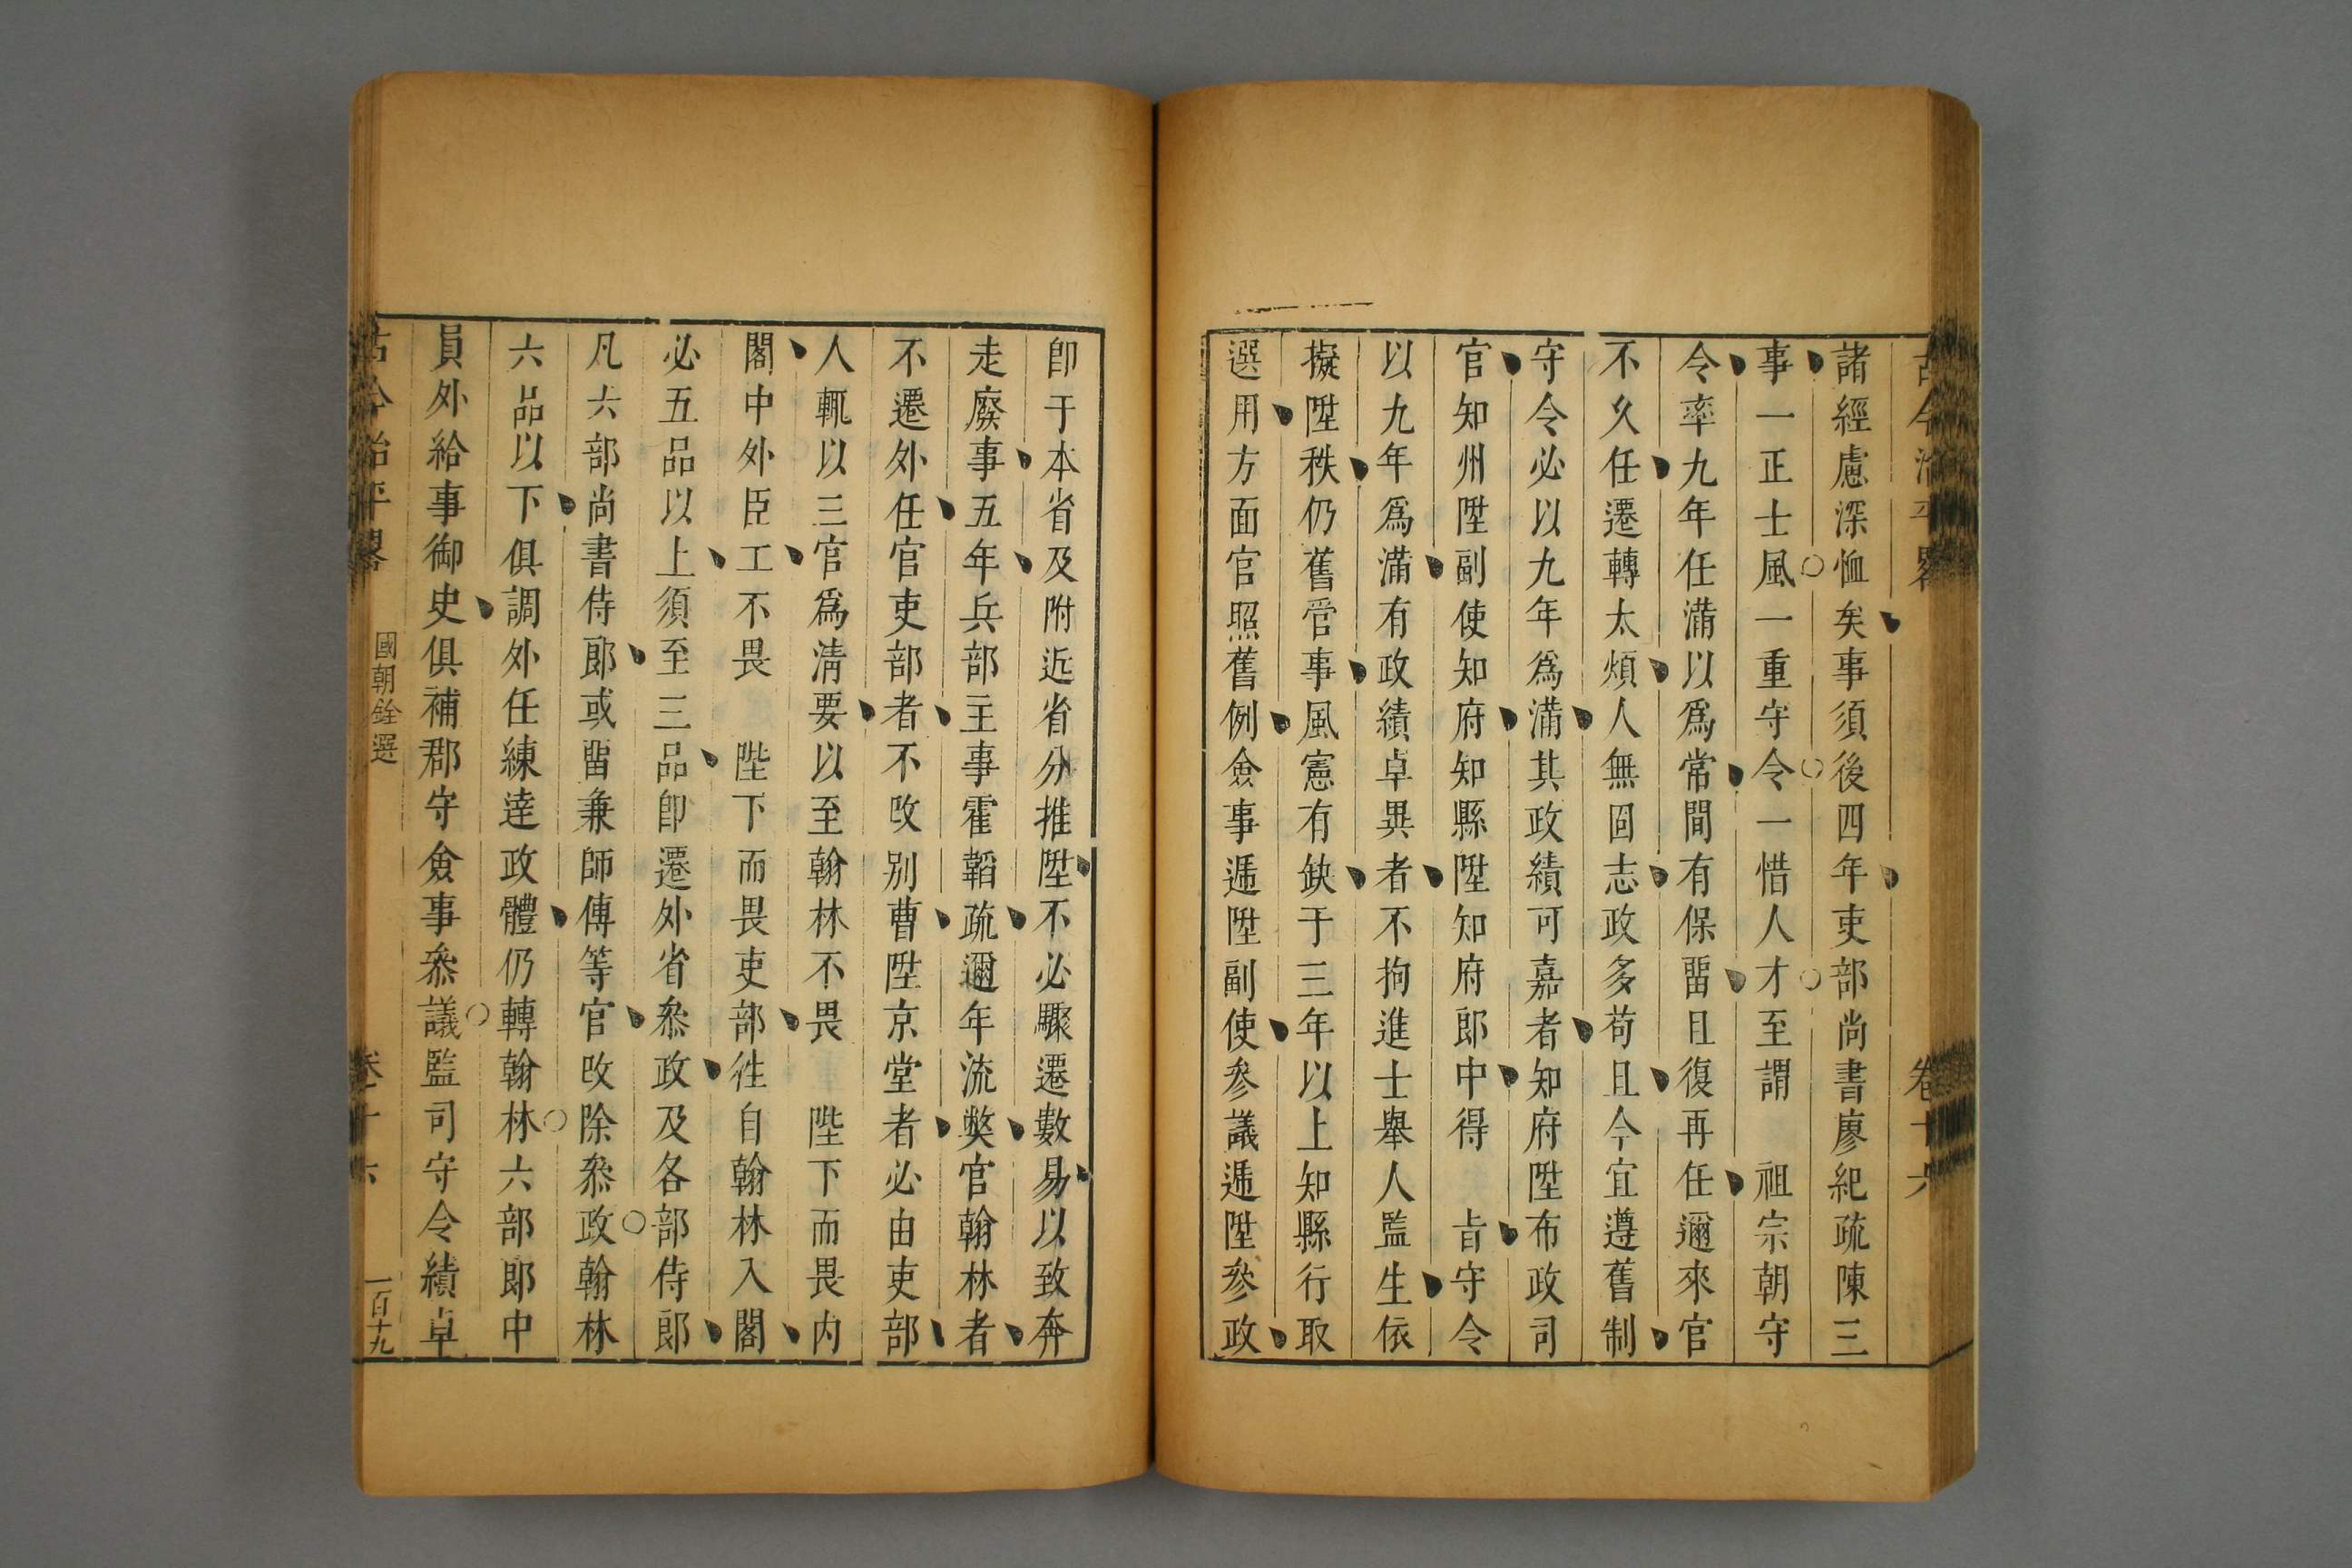 古今治平畧 卷十六
諸經慮深恤矣事須後四年吏部尚書廖紀疏陳三
事一正士風一重守令一惜人才至謂 祖宗朝守
令率九年任滿以爲常間有保畱且復再任邇來官
不久任遷轉太煩人無固志政多苟且今宜遵舊制
守令必以九年爲滿其政績可嘉者知府陞布政司
官知州陞副使知府知縣陞知府郎中得 旨守令
以九年爲滿有政績卓異者不拘進士舉人監生依
擬陞秩仍舊管事風憲有缺于三年以上知縣行取
選用方面官照舊例僉事遞陞副使參議遞陞參政
卽于本省及附近省分推陞不必驟遷數易以致奔
走廢事五年兵部主事霍韜疏邇年流獘官翰林者
不遷外任官吏部者不改別曹陞京堂者必由吏部
人輒以三官爲清要以至翰林不畏 陛下而畏内
閣中外臣工不畏 陛下而畏吏部徃自翰林入閣
必五品以上須至三品卽遷外省叅政及各部侍郎
凡六部尚書侍郎或畱兼師傅等官改除叅政翰林
六品以下俱調外任練達政體仍轉翰林六部郎中
員外給事御史俱補郡守僉事叅議監司守令績卓
古今治平畧 國朝銓選 卷十六 一百十九